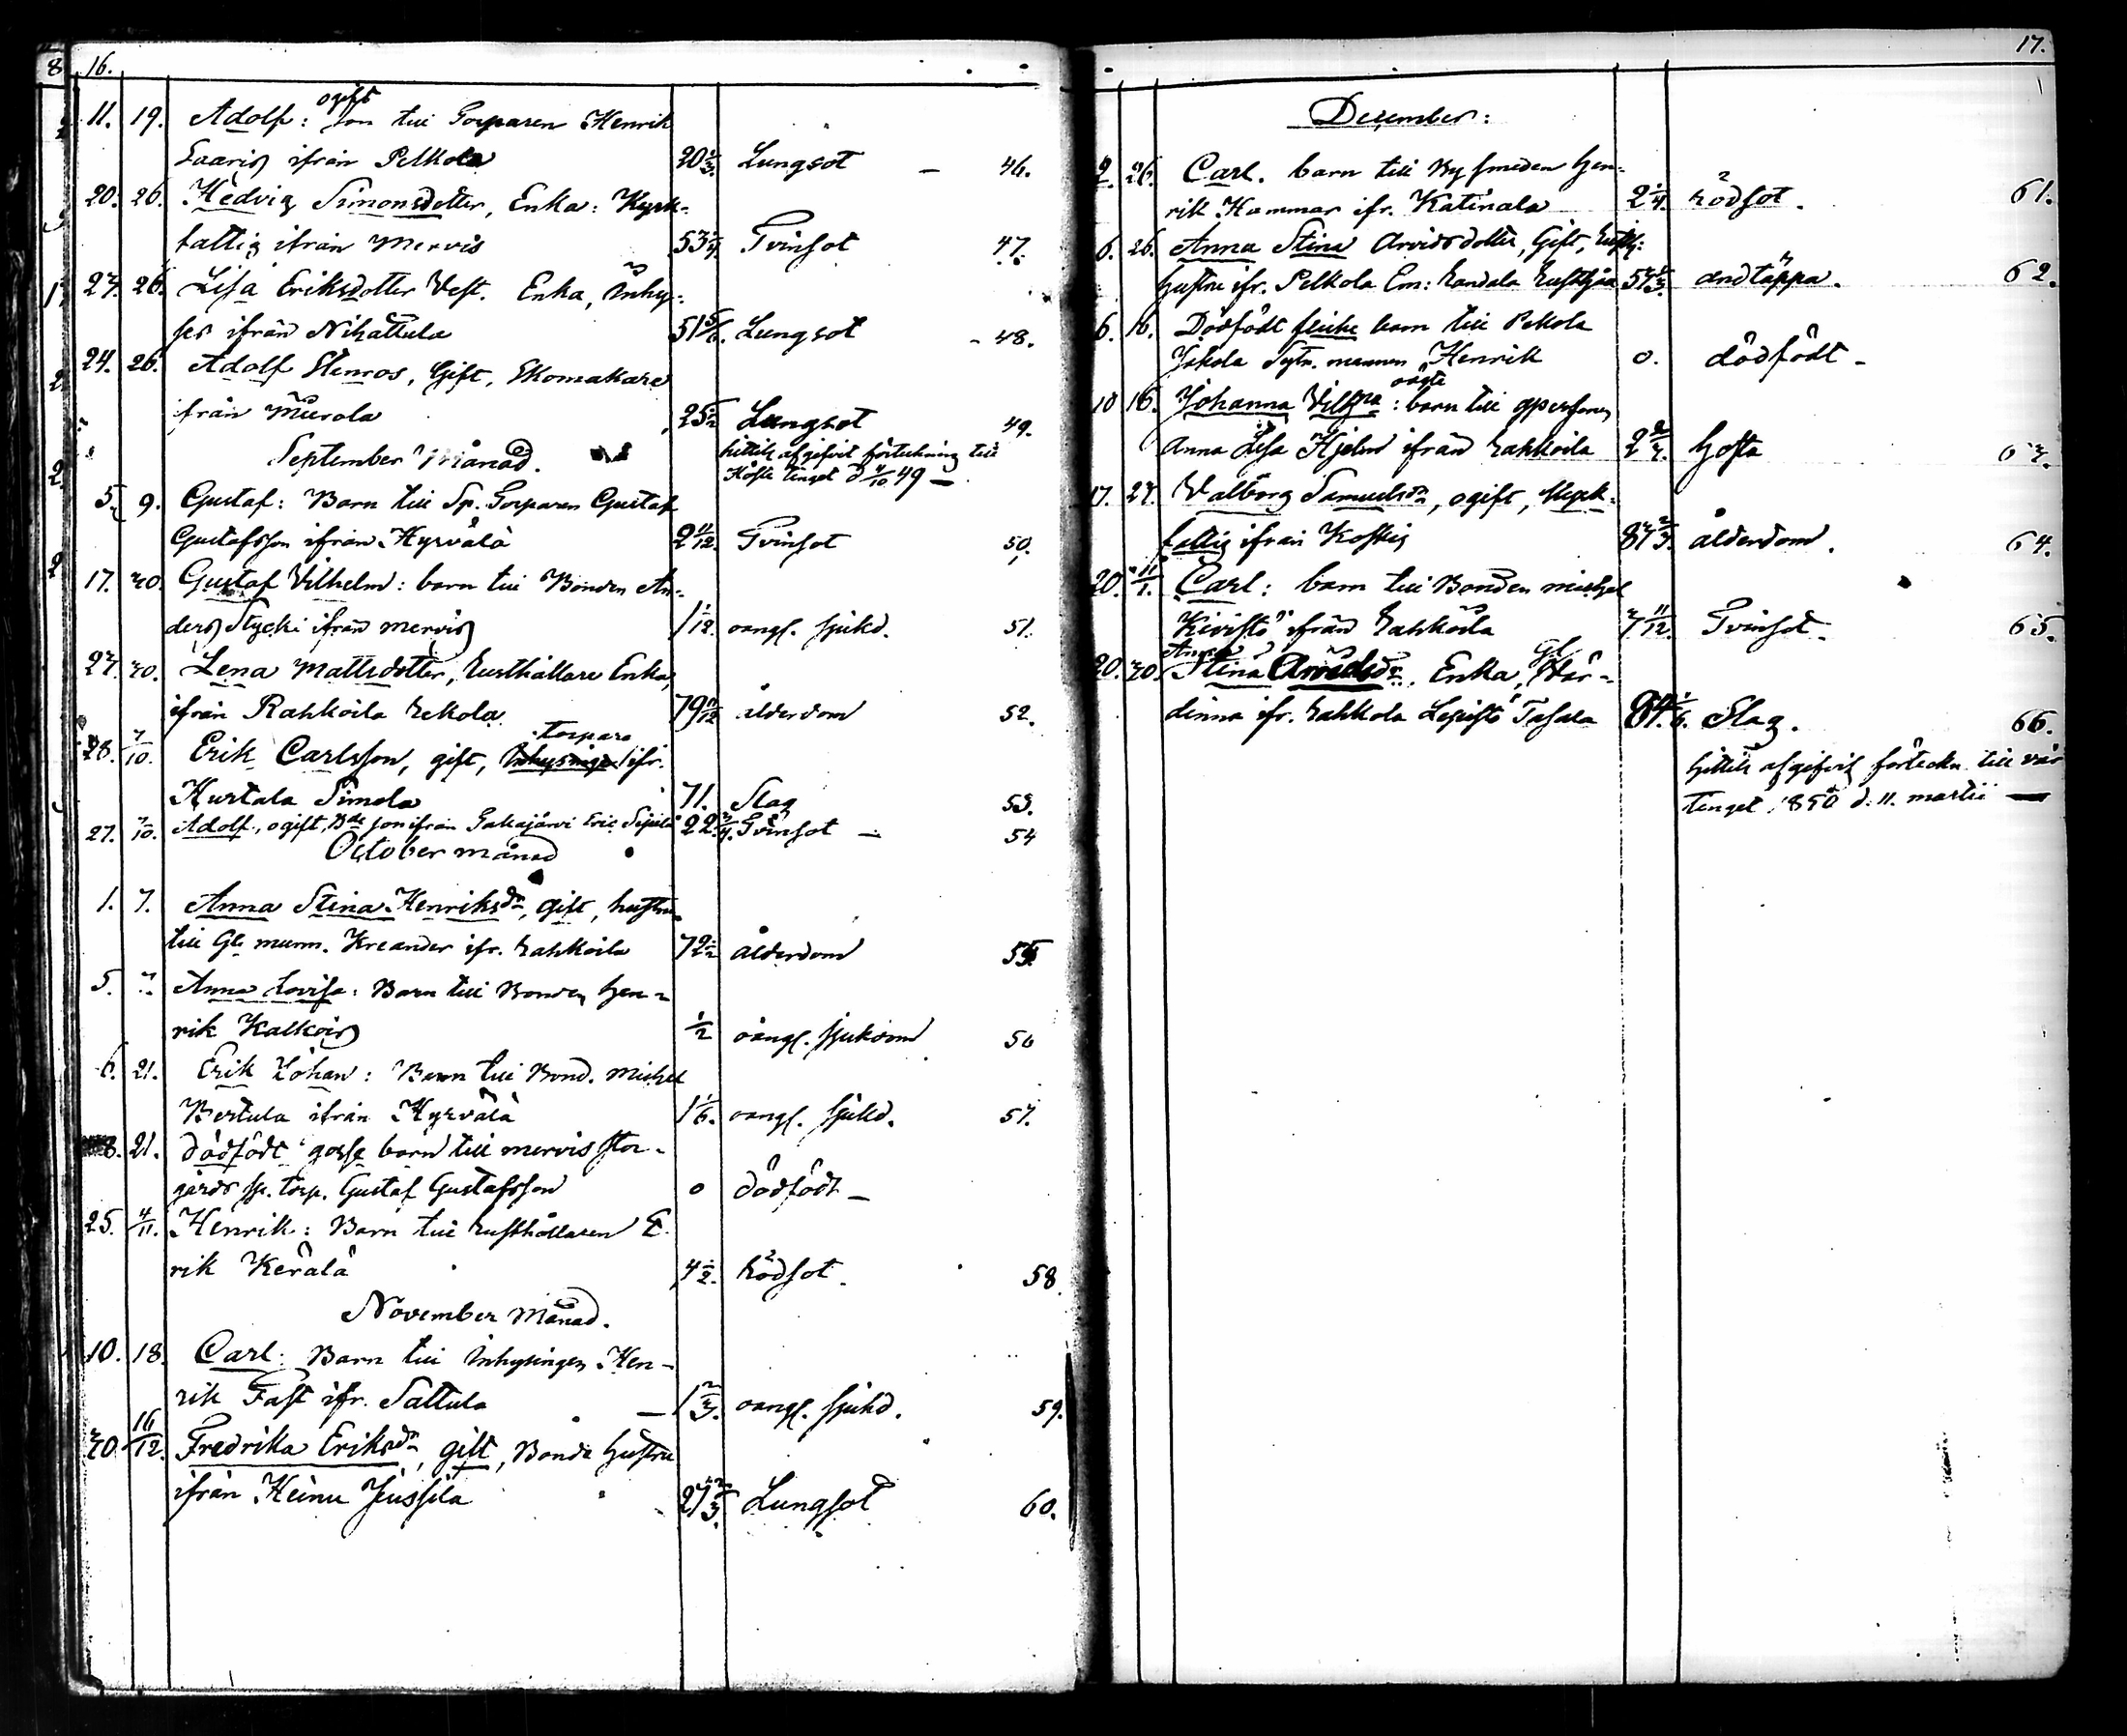 16.
11. 19. Adolf: ogift son till Torparen Henrik
Saaris ifrån Pelkola 20 1/3. Lungsot — 46.
20. 26. Hedvig Simonsdotter, Enka: Kyrk-
fattig ifrån Mervis 53 Tvinsot 47.
27. 26. Lisa Eriksdotter Vest. Enka, Inhy-
ses ifrån Nihattula 51 5/6. Lungsot - 48.
24. 26. Adolf Stenros, Gift, Skomakare
från Murola 25 1/2 Lungsot 49.
September Månad.
hittils afgifvit förtekning till
Höste tinget d 4/10 49 —
5. 9. Gustaf: Barn till Sp. Torparen Gustaf
Gustafsson ifrån Hyrvälä 2 11/12. Tvinsot 50.
17. 30. Gustaf Vilhelm: barn till Bonden An-
ders Stycki ifrån Mervis 1 1/12. oangf. sjukd. 51.
27. 30. Lena Mattsdotter, Rusthållare Enka,
ifrån Rahkoila Rekola 79 11/12 ålderdom 52.
28. 7/10. Erik Carlsson, gift, Inhysinge torpare ifr.
Kurtala Simola 71. Slag 53.
27. 7/10. Adolf, ogift, Bde son ifrån Takajärvi Eric Sipilä 22 3/4. Tvinsot — 54
October månad
1. 7. Anna Stina Henriksdr, gift, hustru
till Gl. murm. Kreander ifr. Rahkoila 72 1/2 ålderdom 55.
5. 7. Anna Lovisa: Barn till Bonden Hen-
rik Kalkois 1/2 oangf. sjukdom 56
6. 21. Erik Johan: Barn till Bond. Michel
Bertula ifrån Hyrvälä 1 1/6. oangf. sjukd. 57.
8. 21. dödfödt gosse barn till Mervis stor-
gårds sp. torp. Gustaf Gustafsson 0 dödfödt —
25. 4/11. Henrik: Barn till Rusthållaren E-
rik Kerälä 4 1/2. Rödsot. 58
November Månad.
10. 18. Carl: Barn till Inhysingen Hen-
rik Fast ifr. Sattula — 1 2/3. oangf. sjukd. 59.
30. 16/12. Fredrika Eriksdr, gift, Bonde hustru
ifrån Heinu Jussila 27 2/3. Lungsot 60.
17.
December:
2. 26. Carl. barn till Bysmeden Hen-
rik Hammar ifr. Katinala 2 1/4. rödsot. 61.
6. 26. Anna Stina Arvidsdotter, Gift, Rusth:
hustru ifr. Pelkola Em: Randala 57 andtäppa. 62.
6. 16. Dödfödt flicke barn till Pekola
Jokola Sytn. mannen Henrik 0. dödfödt -
10 16. Johanna Vilhna: oägta barn till qpersonen
Anna Lisa Hjelm ifrån Rahkoila 2 Hosta 63.
17. 27. Valborg Samuelsdr, ogift, Kyrk-
fattig ifrån Koskis 87 2/3. ålderdom. 64.
20. 11/1. Carl: barn till Bonden Michel
Kivistö ifrån Rahkoila 7 11/12. Tvinsot. 65.
20. 30. Anna Stina Arvidsdr. Enka, Gl. Vär-
dinna ifr. Rahkola Lepistö Tasala 84 1/6. Slag. 66.
hittils afgifvit förteckn. till vår
tinget 1850 d. 11. martii —